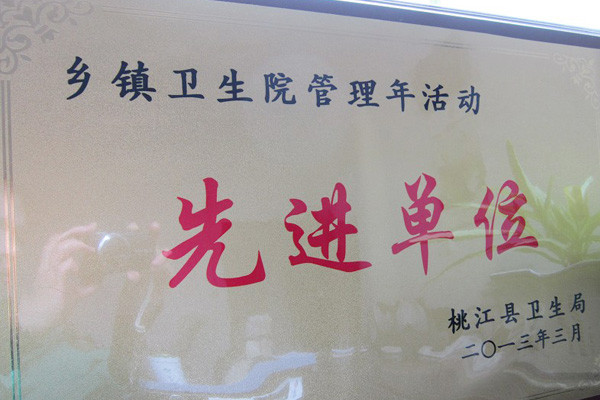 乡镇卫生院管理年活动
先进单位
桃江县卫生局
二〇一三年三月